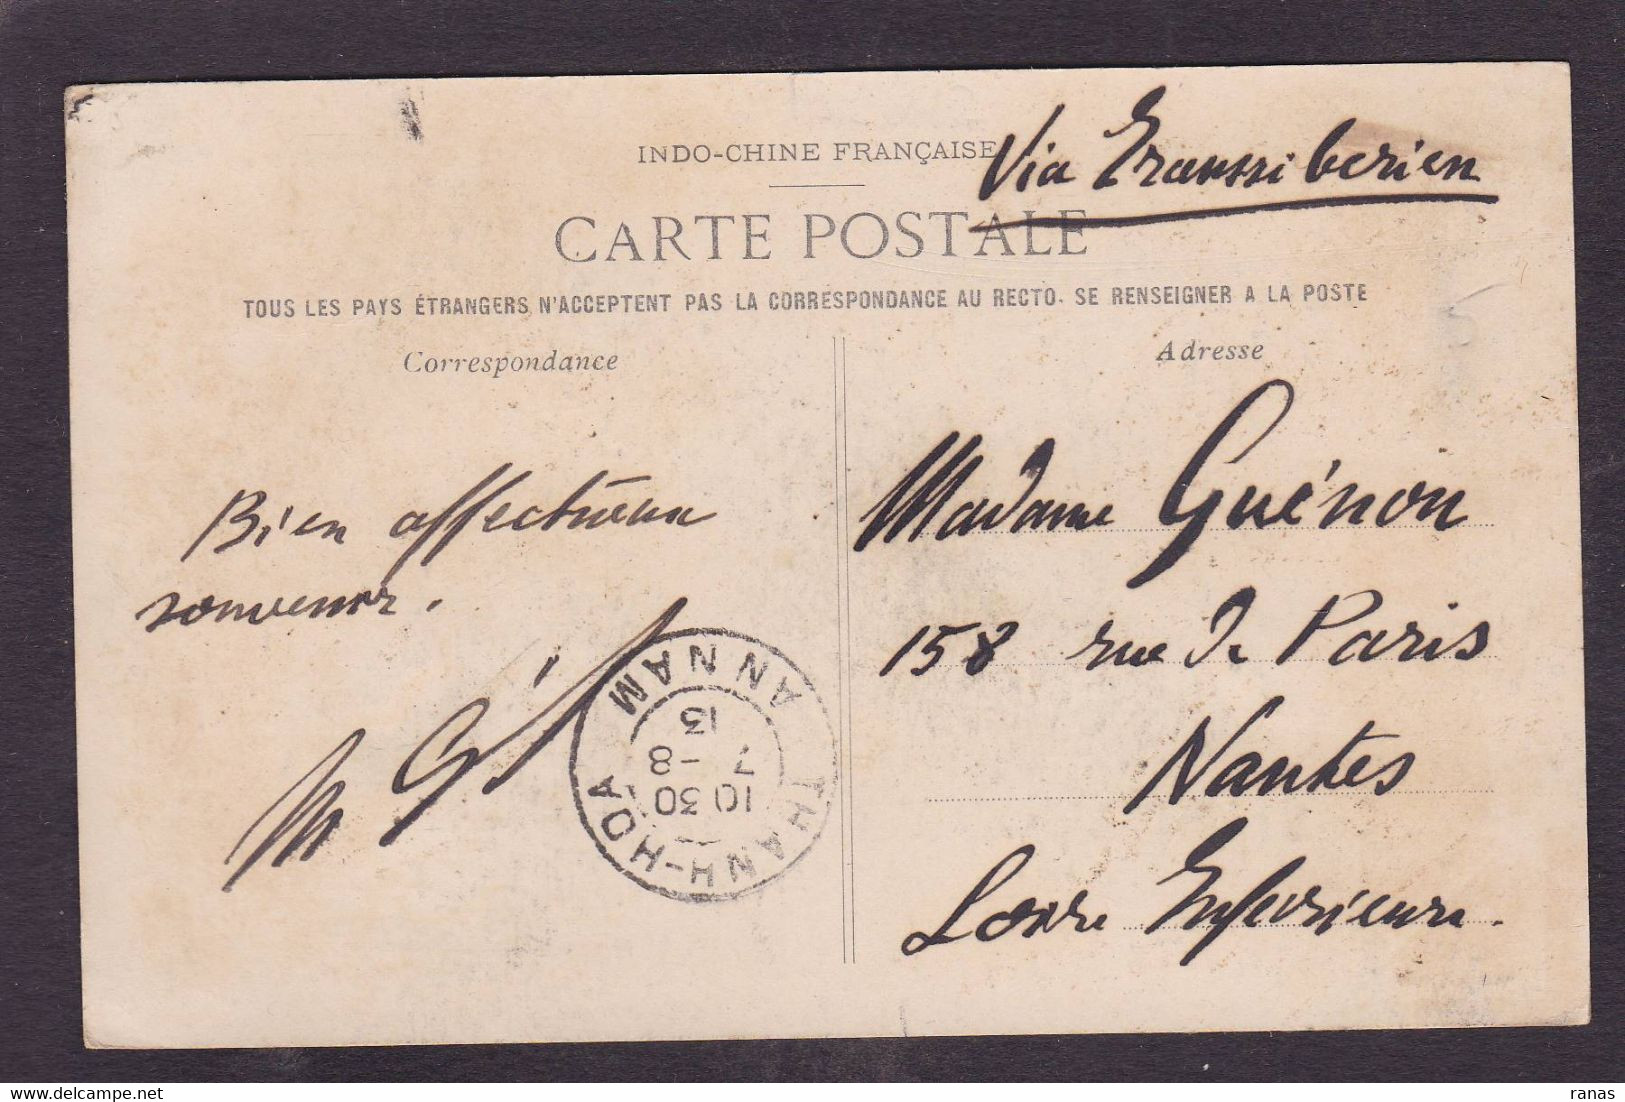 INDO-CHINE FRANÇAISE
Via Transsiberien
CARTE POSTALE
TOUS LES PAYS ÉTRANGERS N'ACCEPTENT PAS LA CORRESPONDANCE AU RECTO. SE RENSEIGNER A LA POSTE
Correspondance
Bien affectueux
souvenir.
M G
THANH-HOA
ANNAM
10 30
7 - 8
13
Adresse
Madame Guénon
158 rue de Paris
Nantes
Loire Inferieure.
ranas